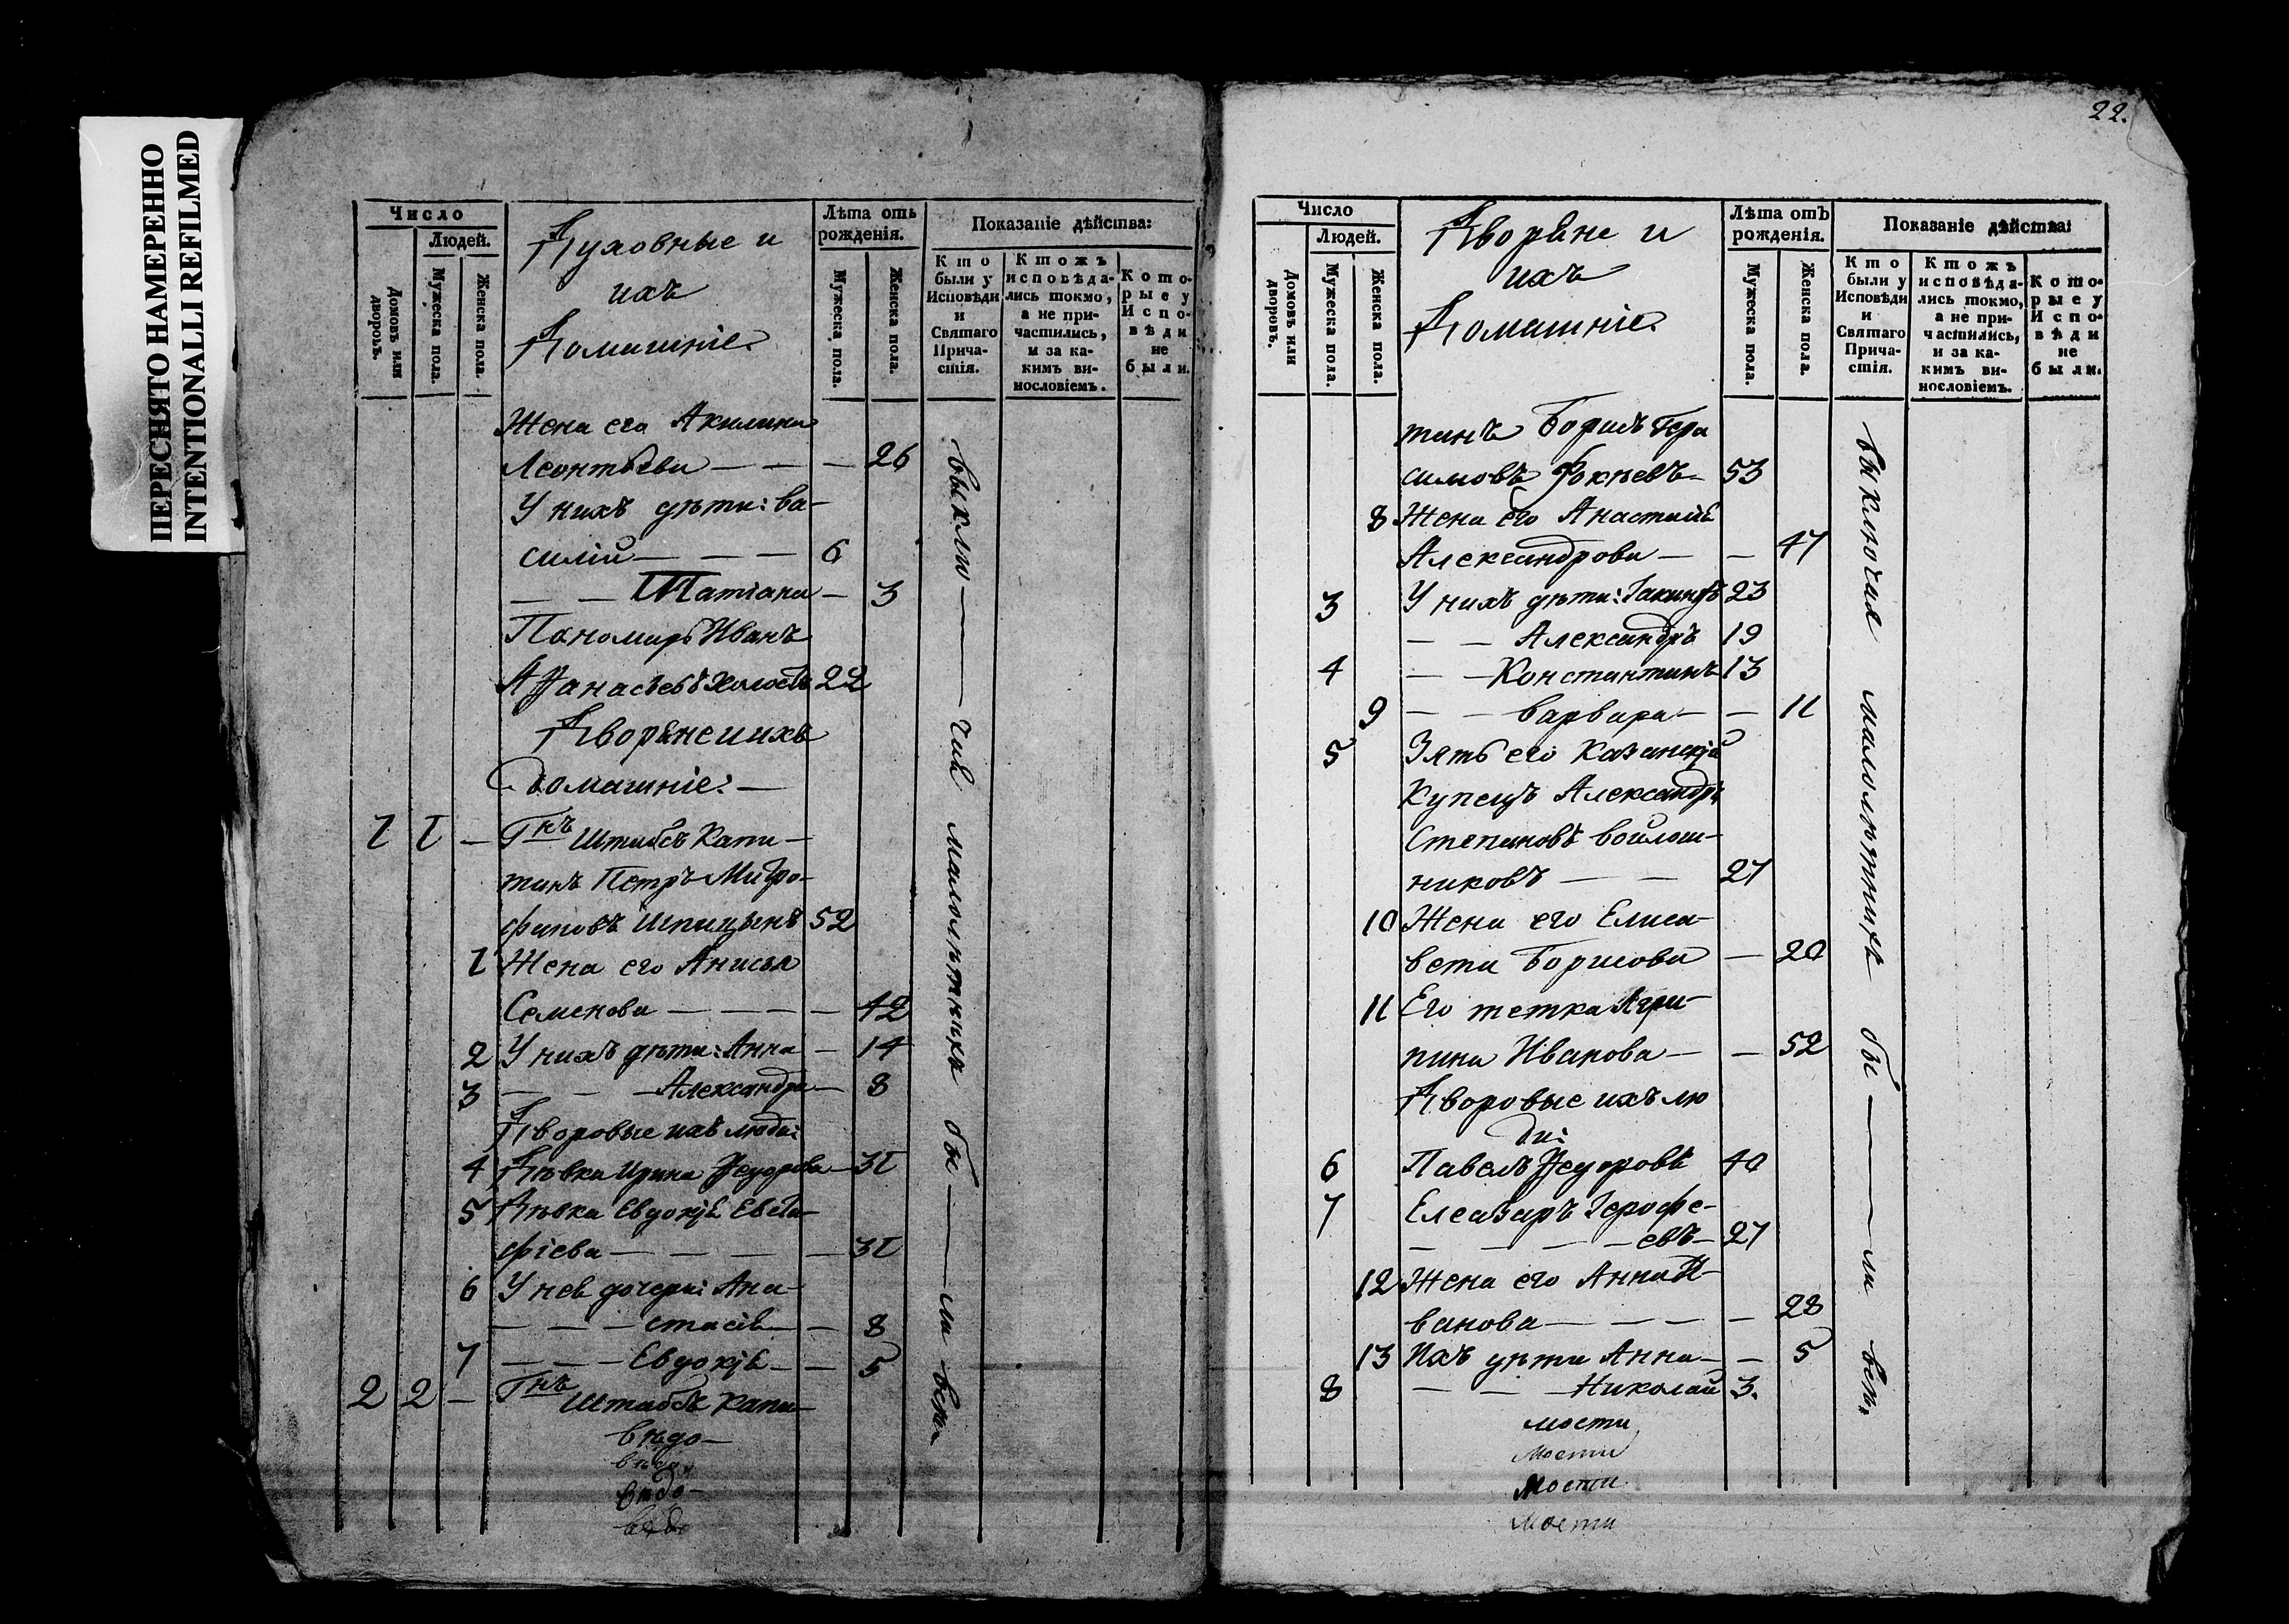 ПЕРЕСНЯТО НАМЕРЕННО
INTENTIONALLI REFILMED
Число
Людей.
Домовъ или дворовъ.
Мужеска пола.
Женска пола.
Духовные и
ихъ
Домашніе.
Лѣта отъ рожденія.
Мужеска пола.
Женска пола.
Показаніе дѣйства:
Кто были у Исповѣди и Святаго Причастія.
Ктожъ исповѣдались токмо, а не причастились, и за какимъ винословіемъ.
Которые у Исповѣди не были.
Жена его Акилина
Леонтьева — — — 26
У нихъ дѣти: Ва-
силій — — — 6
— — Татіана — 3
Пономарь Иванъ
Афанасьевъ холостъ 22
Дворяне и ихъ
Домашніе. —
1 1 — Гнъ Штабсъ Капи-
танъ Петръ Митро-
фановъ Шпицынъ 52
1 Жена его Анисья
Семенова — — — — 42
2 У нихъ дѣти: Анна — 14
3 — — — Александра — 8
Дворовые ихъ люди:
4 Дѣвка Ирина Ѳедорова — 31
5 Дѣвка Евдокія Евста-
фіева — — — — — 31
6 У нея дочери: Ана-
— — — стасія — — 8
7 — — — Евдокія — — 5
2 2 — Гнъ Штабсъ Капи-
вѣдо-
вѣдо-
вѣдо-
вѣдо
выклю — чая малолѣтнихъ бы — ли всѣ
22.
Число
Людей.
Домовъ или дворовъ.
Мужеска пола.
Женска пола.
Дворяне и
ихъ
Домашніе.
Лѣта отъ рожденія.
Мужеска пола.
Женска пола.
Показаніе дѣйства:
Кто были у Исповѣди и Святаго Причастія.
Ктожъ исповѣдались токмо, а не причастились, и за какимъ винословіемъ.
Которые у Исповѣди не были.
танъ Борисъ Гера
симовъ Фокѣевъ — 53
8 Жена его Анастасія
Александрова — — 47
3 У нихъ дѣти: Іакинфъ 23
— — Александръ 19
4 — — Константинъ 13
9 — — Варвара — — 11
5 Зять его Казанскій
Купецъ Александръ
Степановъ Войлош-
никовъ — — 27
10 Жена его Елиса-
вета Борисова — 20
11 Его тетка Агри-
пина Иванова — — 52
Дворовые ихъ лю
ди:
6 Павелъ Ѳедоровъ 40
7 Елеазаръ Іерофе-
— — — — евъ — 27
12 Жена его Анна И-
ванова — — — — 28
13 Ихъ дѣти Анна — — 5
8 — — — Николай 3.
мости
мости
мости
мости
выключая малолѣтнихъ бы — ли всѣ.